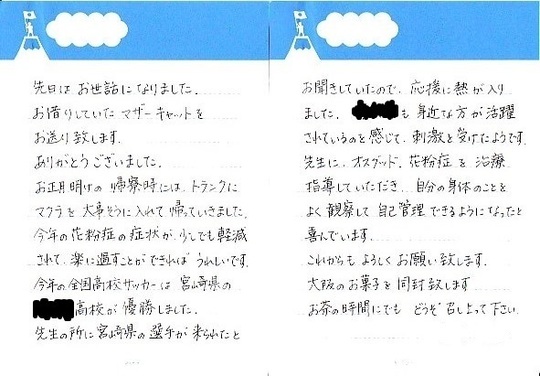 先日は お世話になりました.
お借りしていた マザーキャットを
お送り致します.
ありがとうございました.
お正月明けの 帰寮時には、トランクに
マクラを 大事そうに入れて 帰っていきました.
今年の 花粉症の 症状が、少しでも軽減
されて、楽に過すことが できれば うれしいです.
今年の 全国高校サッカーは 宮崎県の
高校が 優勝しました.
先生の所に 宮崎県の 選手が 来られたと
お聞きしていたので、応援に 熱が入り
ました. も 身近な方が 活躍
されているのを 感じて、刺激を 受けたようです.
先生に、オスグッド、花粉症を 治療
指導していただき、自分の身体のことを
よく観察して 自己管理できるようになったと
喜んでいます.
これからも よろしくお願い致します.
大阪のお菓子を 同封致します
お茶の時間にでも どうぞ 召し上って下さい.